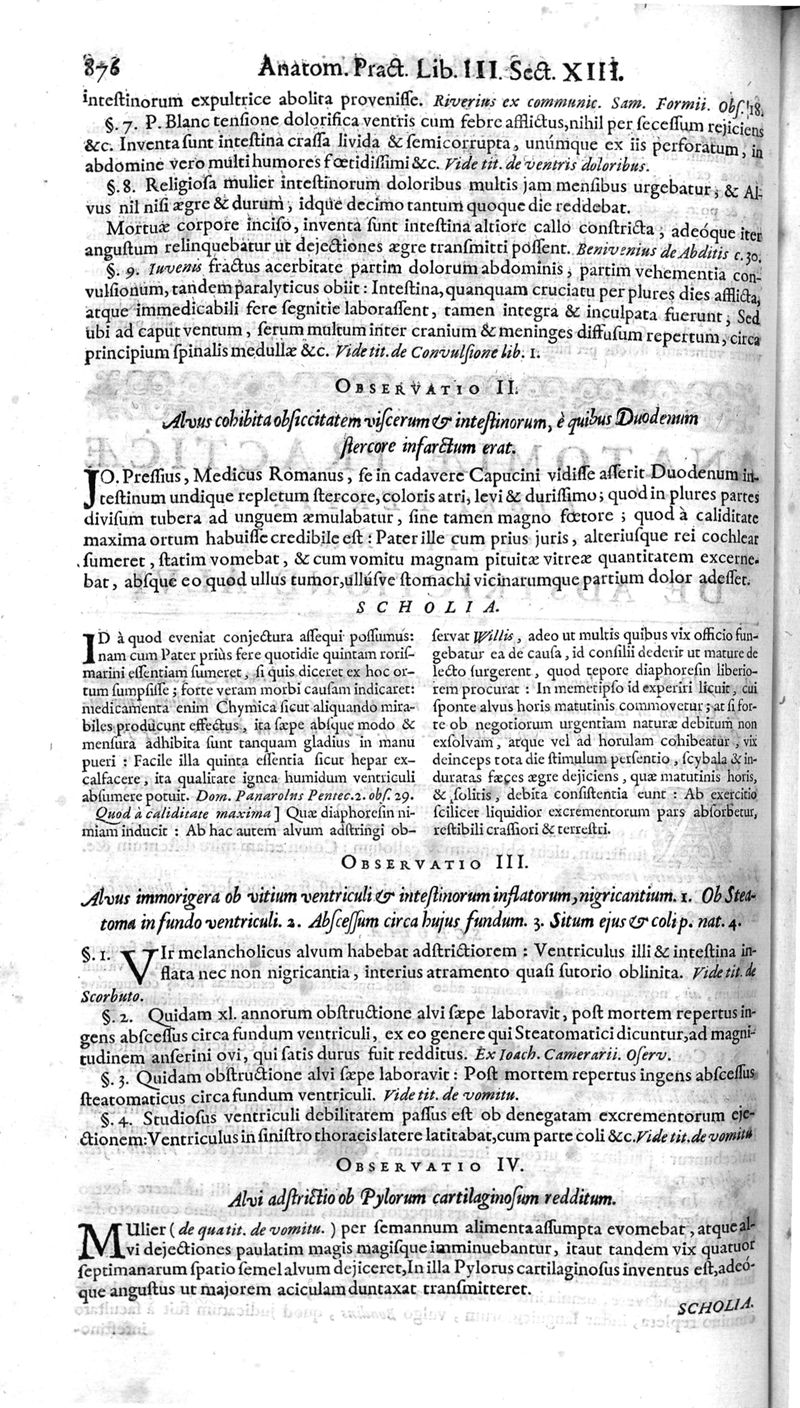 876 Anatom. Pract. Lib. III. Sect. XIII.
inteſtinorum expultrice abolita proveniſſe. Riverius ex communic. Sam. Formii. Obſ. 18.
§. 7. P. Blanc tenſione dolorifica ventris cum febre afflictus, nihil per ſeceſſum rejiciens
&c. Inventa ſunt inteſtina craſſa livida & ſemicorrupta, unúmque ex iis perforatum, in
abdomine vero multi humores fœtidiſſimi &c. Vide tit. de ventris doloribus.
§. 8. Religioſa mulier inteſtinorum doloribus multis jam menſibus urgebatur, & Al-
vus nil niſi ægre & durum, idque decimo tantum quoque die reddebat.
Mortuæ corpore inciſo, inventa ſunt inteſtina altiore callo conſtricta, adeóque iter
anguſtum relinquebatur ut dejectiones ægre tranſmitti poſſent. Benivenius de Abditis c. 30.
§. 9. Iuvenis fractus acerbitate partim dolorum abdominis, partim vehementia con-
vulſionum, tandem paralyticus obiit: Inteſtina, quanquam cruciatu per plures dies afflicta,
atque immedicabili fere ſegnitie laboraſſent, tamen integra & inculpata fuerunt, Sed
ubi ad caput ventum, ſerum multum inter cranium & meninges diffuſum repertum, circa
principium ſpinalis medullæ &c. Vide tit. de Convulſione lib. 1.
OBSERVATIO II.
Alvus cohibita ob ſiccitatem viſcerum & inteſtinorum, è quibus Duodenum
ſtercore infarctum erat.
JO. Preſſius, Medicus Romanus, ſe in cadavere Capucini vidiſſe aſſerit Duodenum in-
teſtinum undique repletum ſtercore, coloris atri, levi & duriſſimo; quod in plures partes
diviſum tubera ad unguem æmulabatur, ſine tamen magno fœtore; quod à caliditate
maxima ortum habuiſſe credibile eſt: Pater ille cum prius juris, alteriuſque rei cochlear
ſumeret, ſtatim vomebat, & cum vomitu magnam pituitæ vitreæ quantitatem excerne-
bat, abſque eo quod ullus tumor, ulluſve ſtomachi vicinarumque partium dolor adeſſet.
SCHOLIA.
ID à quod eveniat conjectura aſſequi poſſumus:
nam cum Pater priùs fere quotidie quintam roriſ-
marini eſſentiam ſumeret, ſi quis diceret ex hoc or-
tum ſumpſiſſe; forte veram morbi cauſam indicaret:
medicamenta enim Chymica ſicut aliquando mira-
biles producunt effectus, ita ſæpe abſque modo &
menſura adhibita ſunt tanquam gladius in manu
pueri: Facile illa quinta eſſentia ſicut hepar ex-
calfacere, ita qualitate ignea humidum ventriculi
abſumere potuit. Dom. Panarolus Pentec. 2. obſ. 29.
Quod à caliditate maxima] Quæ diaphoreſin ni-
miam inducit: Ab hac autem alvum adſtringi ob-
ſervat Willis, adeo ut multis quibus vix officio fun-
gebatur ea de cauſa, id conſilii dederit ut mature de
lecto ſurgerent, quod tepore diaphoreſin liberio-
rem procurat: In memetipſo id experiri licuit, cui
ſponte alvus horis matutinis commovetur; at ſi for-
te ob negotiorum urgentiam naturæ debitum non
exſolvam, atque vel ad horulam cohibeatur, vix
deinceps tota die ſtimulum perſentio, ſcybala & in-
duratas fæces ægre dejiciens, quæ matutinis horis,
& ſolitis, debita conſiſtentia eunt: Ab exercitio
ſcilicet liquidior excrementorum pars abſorbetur,
reſtibili craſſiori & terreſtri.
OBSERVATIO III.
Alvus immorigera ob vitium ventriculi & inteſtinorum inflatorum, nigricantium. 1. Ob Stea-
toma in fundo ventriculi. 2. Abſceſſum circa hujus fundum. 3. Situm ejus & coli p. nat. 4.
§. 1. VIr melancholicus alvum habebat adſtrictiorem: Ventriculus illi & inteſtina in-
flata nec non nigricantia, interius atramento quaſi ſutorio oblinita. Vide tit. de
Scorbuto.
§. 2. Quidam xl. annorum obſtructione alvi ſæpe laboravit, poſt mortem repertus in-
gens abſceſſus circa fundum ventriculi, ex eo genere qui Steatomatici dicuntur, ad magni-
tudinem anſerini ovi, qui ſatis durus fuit redditus. Ex Ioach. Camerarii. Oſerv.
§. 3. Quidam obſtructione alvi ſæpe laboravit: Poſt mortem repertus ingens abſceſſus
ſteatomaticus circa fundum ventriculi. Vide tit. de vomitu.
§. 4. Studioſus ventriculi debilitatem paſſus eſt ob denegatam excrementorum eje-
ctionem: Ventriculus in ſiniſtro thoracis latere latitabat, cum parte coli &c. Vide tit. de vomitu
OBSERVATIO IV.
Alvi adſtrictio ob Pylorum cartilaginoſum redditum.
MUlier (de qua tit. de vomitu.) per ſemannum alimenta aſſumpta evomebat, atque al-
vi dejectiones paulatim magis magiſque imminuebantur, itaut tandem vix quatuor
ſeptimanarum ſpatio ſemel alvum dejiceret, In illa Pylorus cartilaginoſus inventus eſt, adeó-
que anguſtus ut majorem aciculam duntaxat tranſmitteret.
SCHOLIA.